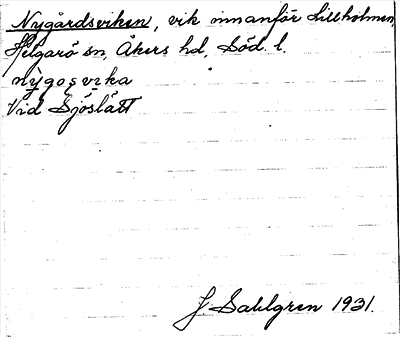 Nygårdsviken, vik innanför Lillholmen,
Helgarö sn, Åkers hd, Söd. l.
nygosvika
Vid Sjöslätt
J. Sahlgren 1931.